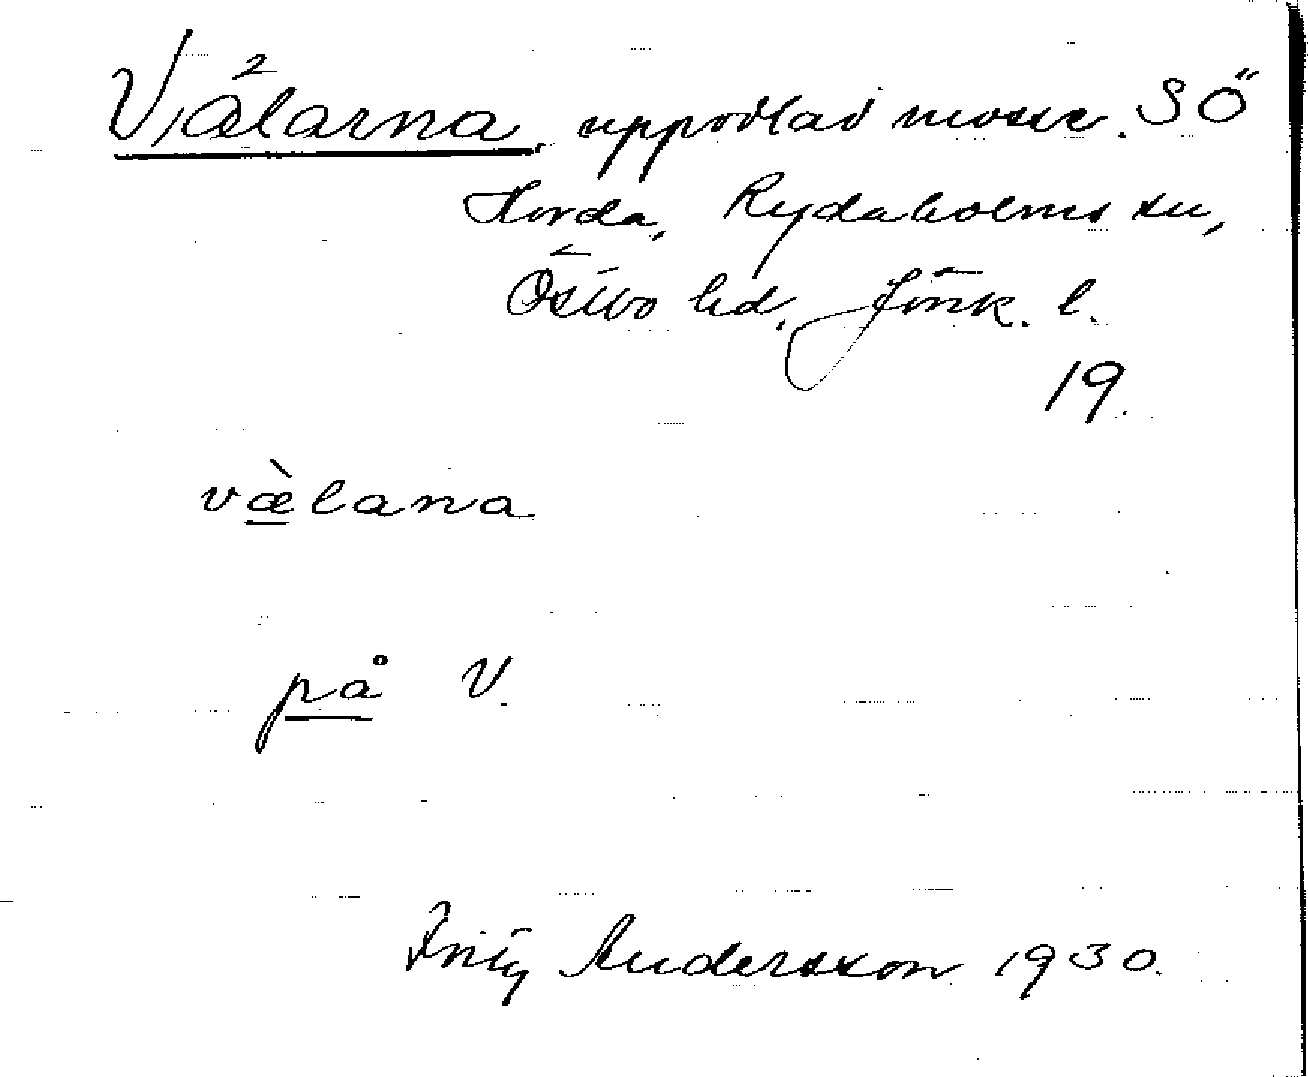 Välarna, uppodlad mosse. SÖ
Horda, Rydaholms sn,
Östbo hd, Jönk. l.
19.
væ̀lana
på V.
Fritz Andersson 1930.